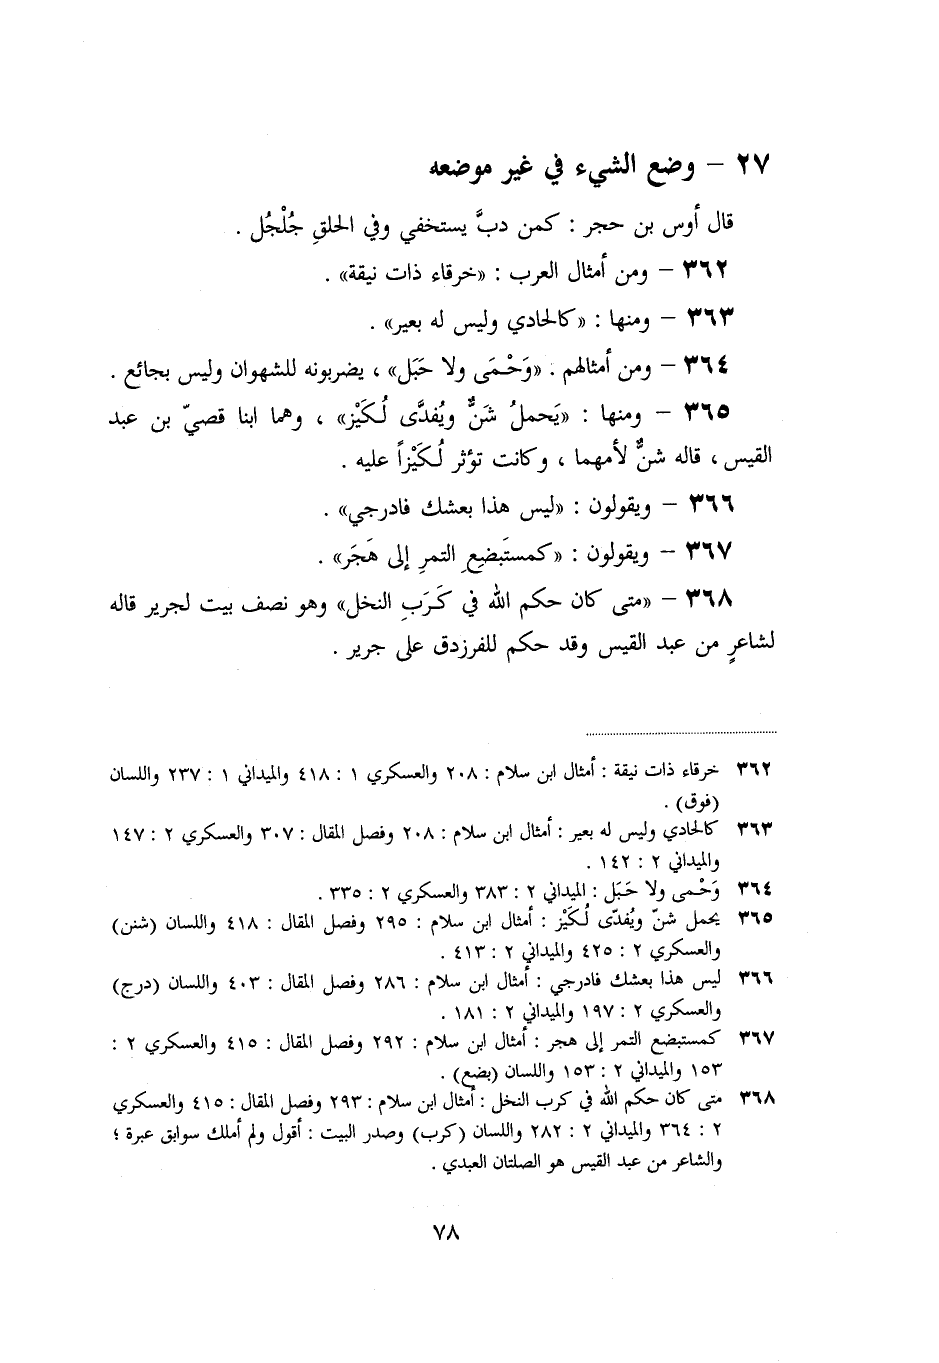 ٢٧ – وضع الشيء في غير موضعه
قال أوس بن حجر : كمن دبَّ يستخفي وفي الحلقِ جُلْجُل .
٣٦٢ – ومن أمثال العرب : «خرقاء ذات نيقة» .
٣٦٣ – ومنها : «كالحادي وليس له بعير» .
٣٦٤ – ومن أمثالهم : «وَحْمَى ولا حَبَل» ، يضربونه للشهوان وليس بجائع .
٣٦٥ – ومنها : «يَحملُ شَنٌّ ويُفدَّى لُكَيْز» ، وهما ابنا قصيّ بن عبد
القيس ، قاله شنٌّ لأمهما ، وكانت تؤثر لُكَيْزاً عليه .
٣٦٦ – ويقولون : «ليس هذا بعشك فادرجي» .
٣٦٧ – ويقولون : «كمستَبضعِ التمرِ إلى هَجَر» .
٣٦٨ – «متى كان حكم الله في كَرَبِ النخل» وهو نصف بيت لجرير قاله
لشاعرٍ من عبد القيس وقد حكم للفرزدق على جرير .
٣٦٢ خرقاء ذات نيقة : أمثال ابن سلام : ٢٠٨ والعسكري ١ : ٤١٨ والميداني ١ : ٢٣٧ واللسان
(فوق) .
٣٦٣ كالحادي وليس له بعير : أمثال ابن سلام : ٢٠٨ وفصل المقال : ٣٠٧ والعسكري ٢ : ١٤٧
والميداني ٢ : ١٤٢ .
٣٦٤ وَحْمى ولا حَبَل : الميداني ٢ : ٣٨٣ والعسكري ٢ : ٣٣٥ .
٣٦٥ يحمل شنّ ويُفدّى لُكَيْز : أمثال ابن سلام : ٢٩٥ وفصل المقال : ٤١٨ واللسان (شنن)
والعسكري ٢ : ٤٢٥ والميداني ٢ : ٤١٣ .
٣٦٦ ليس هذا بعشك فادرجي : أمثال ابن سلام : ٢٨٦ وفصل المقال : ٤٠٣ واللسان (درج)
والعسكري ٢ : ١٩٧ والميداني ٢ : ١٨١ .
٣٦٧ كمستبضع التمر إلى هجر : أمثال ابن سلام : ٢٩٢ وفصل المقال : ٤١٥ والعسكري ٢ :
١٥٣ والميداني ٢ : ١٥٣ واللسان (بضع) .
٣٦٨ متى كان حكم الله في كرب النخل : أمثال ابن سلام : ٢٩٣ وفصل المقال : ٤١٥ والعسكري
٢ : ٣٦٤ والميداني ٢ : ٢٨٢ واللسان (كرب) وصدر البيت : أقول ولم أملك سوابق عبرة ؛
والشاعر من عبد القيس هو الصلتان العبدي .
٧٨